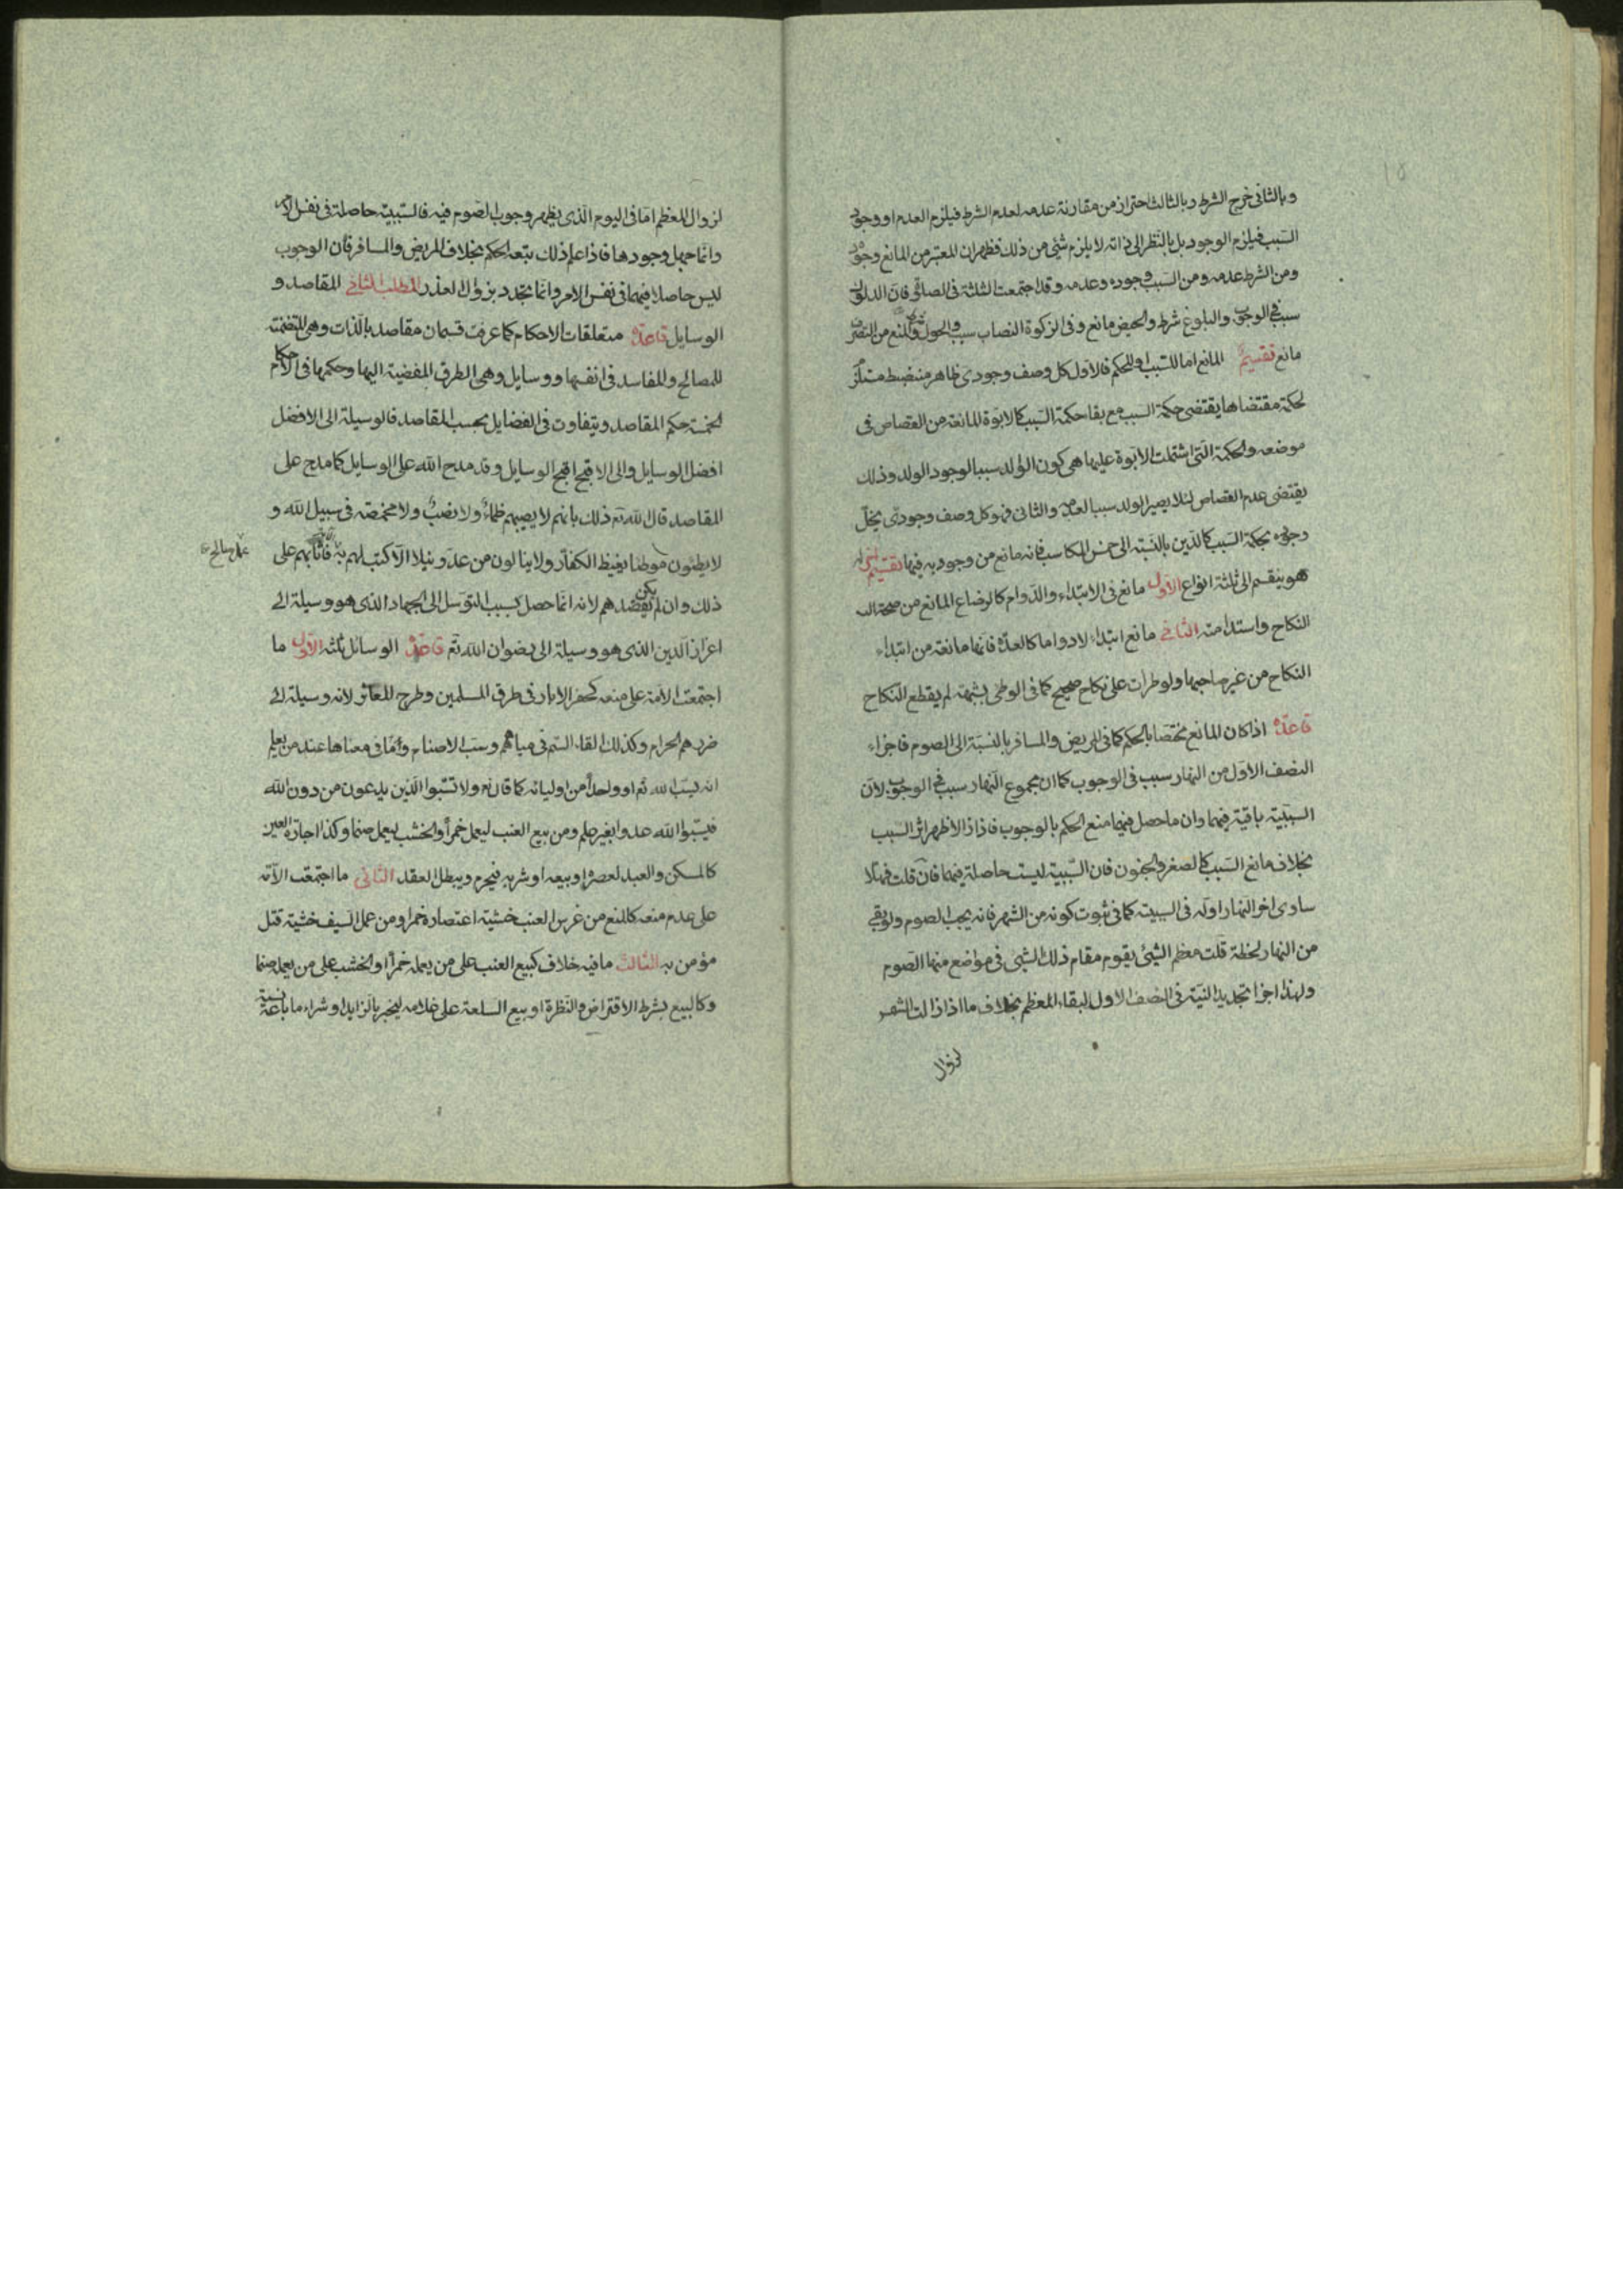 وبالثانى خرج الشرط وبالثالث احتراز من مقارنة عدمه لعدم الشرط فيلزم العدم او وجود
السبب فيلزم الوجود بل بالنظر الى ذاته لا يلزم شئ من ذلك فظهر ان المعتبر من المانع وجوده
ومن الشرط عدمه ومن السبب وجوده وعدمه وقد اجتمعت الثلثة فى الصلوة فان الدلوك
سبب فى الوجوب والبلوغ شرط والحيض مانع وفى الزكوة النصاب سبب والحول شرط والمنع من التصرف
مانع تقسيم المانع اما للسبب او للحكم فالاول كل وصف وجودى ظاهر منضبط مستلزم
لحكمة مقتضاها يقتضى حكمة السبب مع بقا حكمة السبب كالابوة المانعة من القصاص فى
موضعه والحكمة التى اشتملت الابوة عليها هى كون الوالد سببا لوجود الولد وذلك
يقتضى عدم القصاص لئلا يصير الولد سببا لعدمه والثانى فهو كل وصف وجودى يخل
وجوده بحكمة السبب كالدين بالنسبة الى خمس المكاسب فانه مانع من وجوبه فيها تقسيم اخر له
هو ينقسم الى ثلثة انواع الاول مانع فى الابتداء والدوام كالرضاع المانع من صحة
النكاح واستدامته الثانى مانع ابتداء لا دواما كالعدة فانها مانعة من ابتداء
النكاح من غير صاحبها ولو طرات على نكاح صحيح كما فى الوطى بشبهة لم يقطع النكاح
قاعدة اذا كان المانع مختصا بالحكم كما فى المريض والمسافر بالنسبة الى الصوم فاجزاء
النصف الاول من النهار سبب فى الوجوب كما ان مجموع النهار سبب فى الوجوب لان
السببية باقية فيهما وان ما حصل فيهما منع الحكم بالوجوب فاذا زالا ظهر اثر السبب
بخلاف مانع السبب كالصغر والجنون فان السببية ليست حاصلة فيهما فان قلت فهلا
ساوى اخر النهار اوله فى السببية كما فى ثبوت كونه من الشهر فانه يجب الصوم ولو بقى
من النهار لحظة قلت معظم الشئ يقوم مقام ذلك الشئ فى مواضع منها الصوم
ولهذا اجزا تجديد النية فى النصف الاول لبقاء المعظم بخلاف ما اذا زالت الشمس
لزوال
لزوال المعظم اما فى اليوم الذى يظهر وجوب الصوم فيه فالسببية حاصلة فى نفس الامر
وانما جهل وجودها فاذا علم ذلك يتبعه الحكم بخلاف المريض والمسافر فان الوجوب
ليس حاصلا فيهما فى نفس الامر وانما تجدد بزوال العذر المطلب الثانى المقاصد و
الوسايل قاعدة متعلقات الاحكام كما عرفت قسمان مقاصد بالذات وهى المتضمنة
للمصالح والمفاسد فى انفسها ووسايل وهى الطرق المفضية اليها وحكمها فى الاحكام
الخمسة حكم المقاصد ويتفاوت فى الفضايل بحسب المقاصد فالوسيلة الى الافضل
افضل الوسايل والى الاقبح اقبح الوسايل وقد مدح الله على الوسايل كما مدح على
المقاصد قال الله تع ذلك بانهم لا يصيبهم ظماء ولا نصب ولا مخمصة فى سبيل الله و
لا يطئون موطئا يغيظ الكفار ولا ينالون من عدو نيلا الا كتب لهم به فاثابهم على
عمل صالح
ذلك وان لم يكن بقصدهم لانه انما حصل بسبب التوسل الى الجهاد الذى هو وسيلة الى
اعزاز الدين الذى هو وسيلة الى رضوان الله تع قاعدة الوسائل ثلثة الاول ما
اجتمعت الامة على منعه كحفر الابار فى طرق المسلمين وطرح المعاثر لانه وسيلة الى
ضررهم الحرام وكذلك القاء السم فى مياههم وسب الاصنام وما فى معناها عند من يعلم
انه يسب الله تع او واحدا من اوليائه كما قال تع ولا تسبوا الذين يدعون من دون الله
فيسبوا الله عدوا بغير علم ومن بيع العنب ليعمل خمرا والخشب ليعمل صنما وكذا اجارة العين
كالمسكن والعبد لعصره او بيعه او شربه فيحرم ويبطل العقد الثانى ما اجتمعت الامة
على عدم منعه كالمنع من غرس العنب خشية اعتصاره خمرا ومن عمل السيف خشية قتل
مؤمن به الثالث ما فيه خلاف كبيع العنب على من يعمله خمرا والخشب على من يعمل صنما
وكالبيع بشرط الاقتراض والنظرة او بيع السلعة على غلامه ليخبر بالزايد او شراء ما باعه نسية